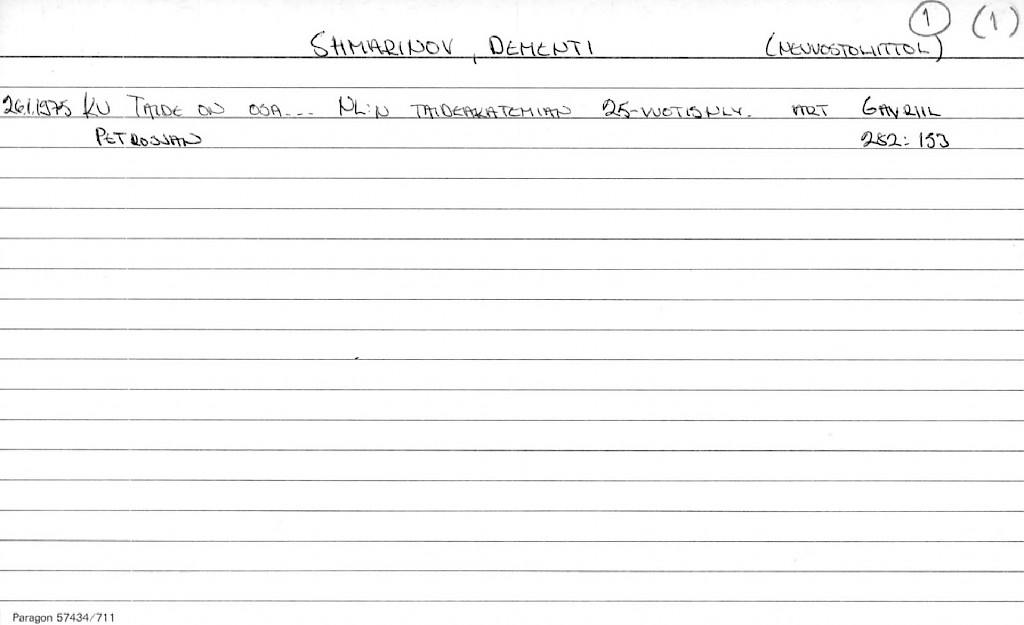 ① (1)
SHMARINOV, DEMENTI (NEUVOSTOLIITTO)
26.1.1975 KU TAIDE ON OSA... NL:N TAIDEAKATEMIAN 25-VUOTISNLY. ART GAVRIIL
PETROSSAN 252:153
Paragon 57434/711